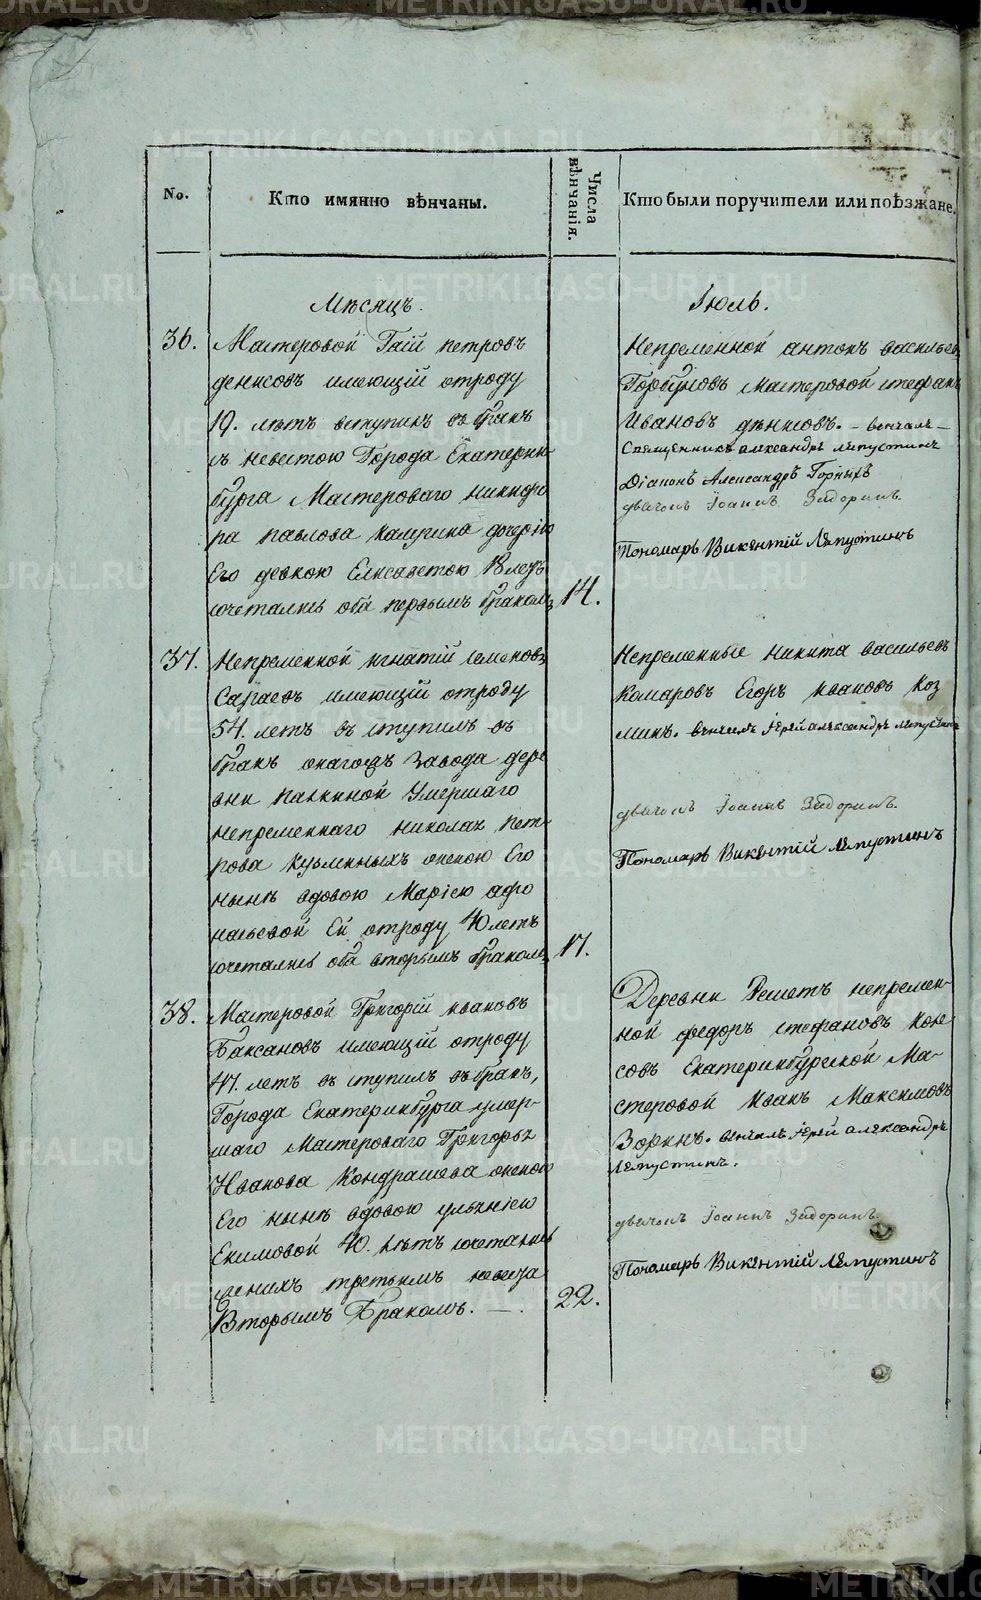 No.
Кто имянно вѣнчаны.
Числа вѣнчанія.
Кто были поручители или поѣзжане.
Мѣсяцъ.
Іюль.
36.
Мастеровой Гаій петровъ
денисовъ имеющій отроду
19. летъ вступилъ въ бракъ
съ невестою Города Екатерин-
бурга Мастероваго никифо
ра павлова калугина дочерію
Его девкою Елисаветою 18 летъ
сочетались оба первымъ бракомъ
14.
Непременной антонъ васильевъ
Горбуновъ мастеровой стефанъ
Ивановъ денисовъ. – венчалъ –
Священникъ александръ Ляпустинъ
Діаконъ Александръ Горныхъ
дьячокъ Іоаннъ Задоринъ.
Пономарь Викентій Ляпустинъ
37.
Непременной игнатій семеновъ
имеющій отроду
54. летъ въ ступилъ въ
бракъ онагожъ завода дере
вни палкиной Умершаго
непременнаго николая пет-
рова кузминыхъ женою Его
нынѣ вдовою Маріею афо
насьевой Ей отроду 40 летъ
сочетались оба вторымъ бракомъ
17.
Непременные никита васильевъ
комаровъ Егоръ ивановъ коз
минъ. венчалъ Іерей александръ Ляпустинъ
дьячокъ Іоаннъ Задоринъ.
Пономарь Викентій Ляпустинъ
38.
Мастеровой Григорій ивановъ
Баксановъ имеющій отроду
47. летъ въ ступилъ въ бракъ,
Города Екатеринбурга умер-
шаго Мастероваго Григорья
Иванова Кондрашева женою
Его нынѣ вдовою ульяніею
Екимовой 40. летъ сочетались
женихъ третьимъ невеста
Вторымъ Бракомъ. —
22.
Деревни Решетъ непремен-
ной федоръ стефановъ кон
совъ Екатеринбургской Ма-
стеровой Иванъ Максимовъ
Зоринъ. венчалъ Іерей александръ
Ляпустинъ.
дьячокъ Іоаннъ Задоринъ.
Пономарь Викентій Ляпустинъ
METRIKI.GASO-URAL.RU